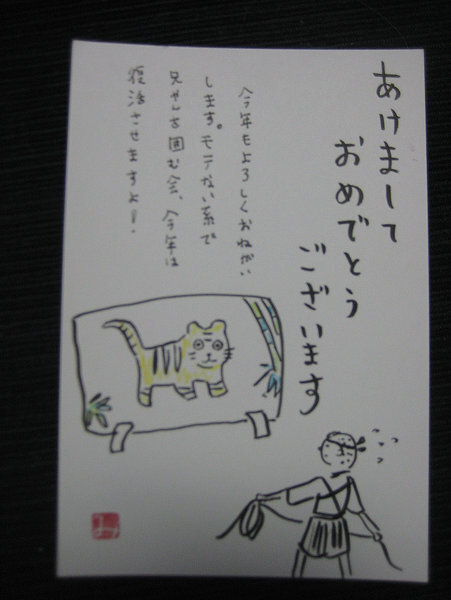 あけまして
おめでとう
ございます
今年もよろしくおねがい
します。モテない系で
兄やんを囲む会、今年は
復活させますよー。